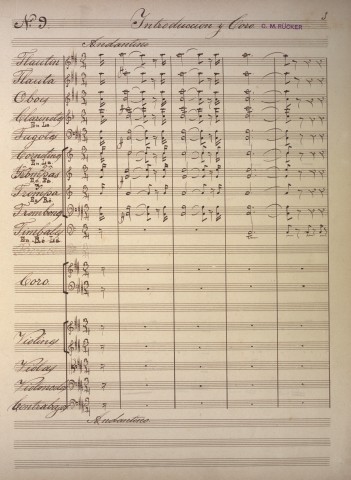 No 9. Introduccion y Coro G. M. RÜCKER 1
Andantino
Flautin
Flauta
Oboes
Clarinetes
En La
Fagotes
Cornetines
En La
Trompas
En Re
Trompa
En Re
Trombones
Timbales
En Re La
Coro.
Violines
Violas
Violoncelos
Contrabajos
Andantino